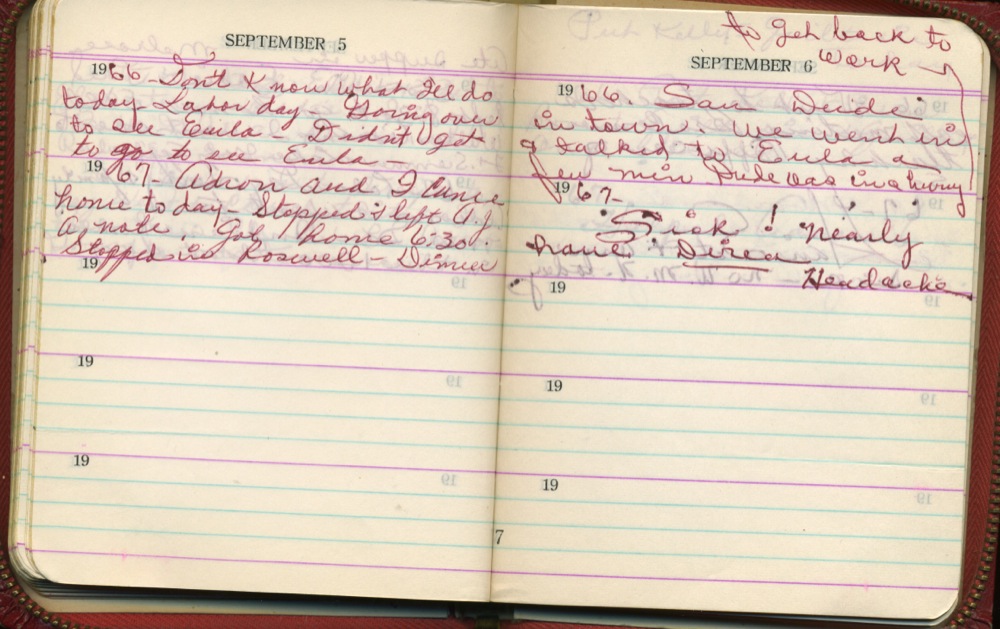 SEPTEMBER 5
1966 - Don't know what I'll do
today - Labor day - Going over
to see Eula - Didn't get
to go to see Eula -
1967 - Adron and I came
home to day - Stopped & left A.J.
a note. Got home 6:30.
Stopped in Roswell - Dinner
19
19
19
to get back to
work
SEPTEMBER 6
1966. Saw
in town. We went in
& talked to Eula a
few min. was in a hurry
1967 -
Sick! nearly
have
Headache
19
19
19
7